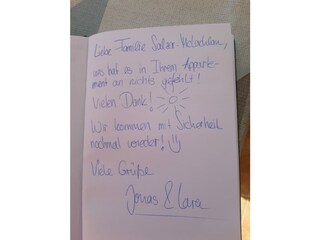 Liebe Familie Salzer-
uns hat es in Ihrem Apparte-
ment an nichts gefehlt!
Vielen Dank!
Wir kommen mit Sicherheit
nochmal wieder!
Viele Grüße
Jonas & Lara